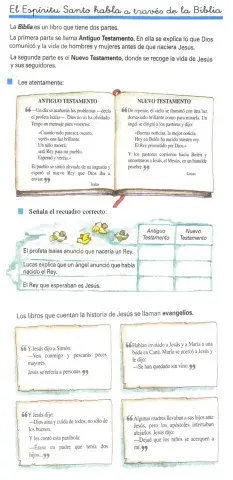 El Espíritu Santo habla a través de la Biblia
La Biblia es un libro que tiene dos partes.
La primera parte se llama Antiguo Testamento. En ella se explica lo que Dios
comunicó y la vida de hombres y mujeres antes de que naciera Jesús.
La segunda parte es el Nuevo Testamento, donde se recoge la vida de Jesús
y sus seguidores.
Lee atentamente:
ANTIGUO TESTAMENTO
el profeta Isaías— Dios no lo ha olvidado.
Tengo un mensaje para vosotros:
«Cuando todo parezca oscuro,
veréis una luz brillante.
Un niño nacerá;
será Rey para su pueblo.
Esperad y veréis.»
El pueblo se sintió aliviado de su angustia y
esperó al nuevo Rey que Dios iba a
enviar.
Isaías
NUEVO TESTAMENTO
De repente, el cielo se iluminó con una luz
demasiado brillante como para mirarla. Un
ángel se dirigió a los pastores y dijo:
«Buenas noticias, la mejor noticia.
Hoy en Belén ha nacido vuestro rey.
El Rey prometido por Dios.»
Y los pastores corrieron hacia Belén y
encontraron a Jesús, el Mesías, en un humilde
pesebre.
Lucas
Señala el recuadro correcto:
Antiguo
Testamento
Nuevo
Testamento
El profeta Isaías anunció que nacería un Rey.
Lucas explica que un ángel anunció que había
nacido el Rey.
El Rey que esperaban es Jesús.
Los libros que cuentan la historia de Jesús se llaman evangelios.
Y Jesús dijo a Simón:
—Ven conmigo y pescarás peces
mayores.
Jesús se refería a personas.
Habían invitado a Jesús y a María a una
boda en Caná. María se acercó a Jesús y
le dijo:
—Se han quedado sin vino.
Y Jesús dijo:
—Dios ama y cuida de todos, no sólo de
los buenos.
Y les contó esta parábola:
—Érase un padre que tenía dos
hijos...
Algunas madres llevaban a sus hijos ante
Jesús, pero los apóstoles intentaban
alejarlos. Jesús dijo:
—Dejad que los niños se acerquen a
mí.